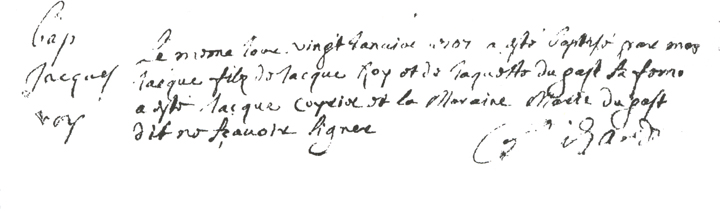 Bap
Jacques
roy
Le mesme Jour vingt Janvier 1707 a esté baptisé par moy
Jacque filz de Jacque Roy et de Jaquette du past sa femme
a esté Jacque et la Maraine Marie du past
dit ne sçavoir signer